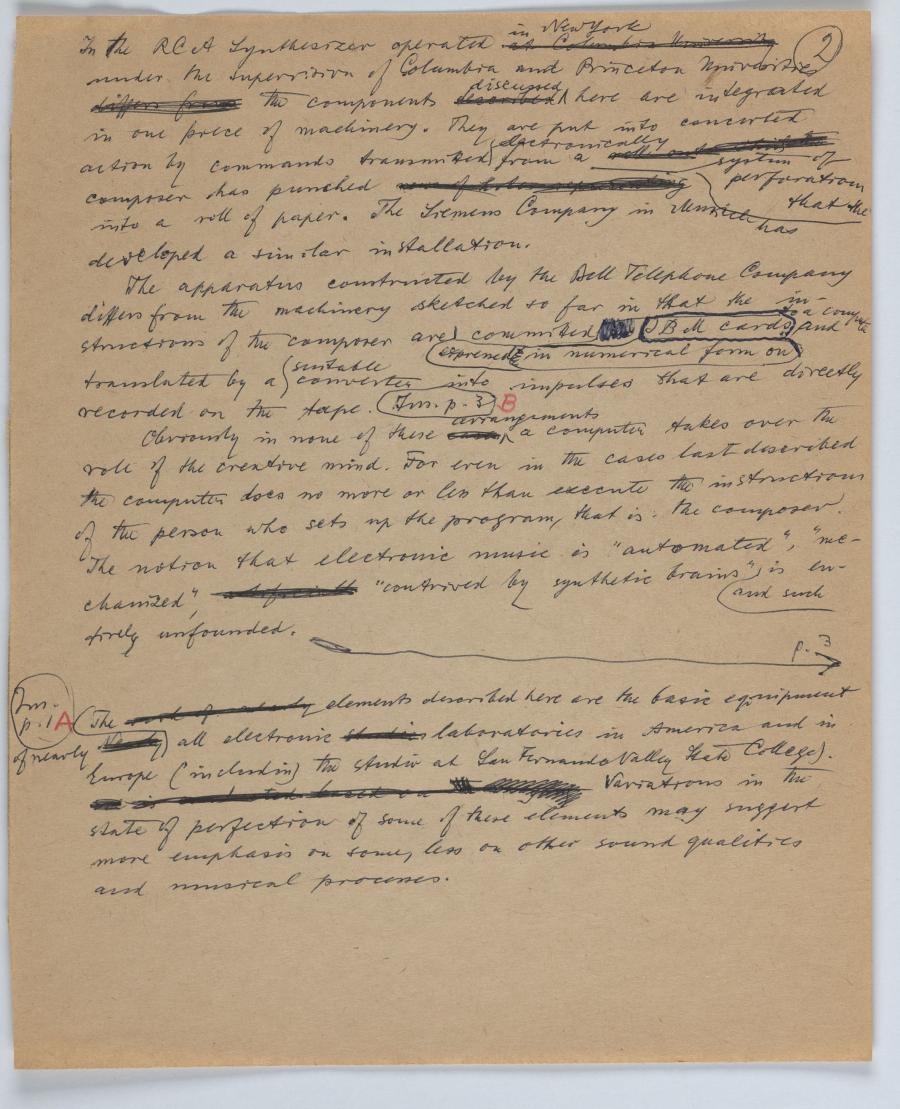 2
in New York
In the RCA Synthesizer operated at Columbia University
under the supervision of Columbia and Princeton Universities
differs from the components described discussed here are integrated
in one piece of machinery. They are put into concerted
action by commands transmitted electronically from a system of
perforations that the
composer has punched
into a roll of paper. The Siemens Company in Munich has
developed a similar installation.
The apparatus constructed by the Bell Telephone Company
differs from the machinery sketched so far in that the in-
structions of the composer are committed to a computer and
expressed in numerical form on IBM cards
translated by a suitable converter into impulses that are directly
recorded on the tape. Ins. p. 3 B
Obviously in none of these cases arrangements a computer takes over the
role of the creative mind. For even in the cases last described
the computer does no more or less than execute the instructions
of the person who sets up the program, that is: the composer.
The notion that electronic music is "automated", "me-
chanized", "contrived by synthetic brains", and such is en-
tirely unfounded.
p. 3
Ins. p. 1 A
The elements described here are the basic equipment
of nearly all electronic studios laboratories in America and in
Europe (includin) the studio at San Fernando Valley State College).
Variations in the
state of perfection of some of these elements may suggest
more emphasis on some, less on other sound qualities
and musical processes.